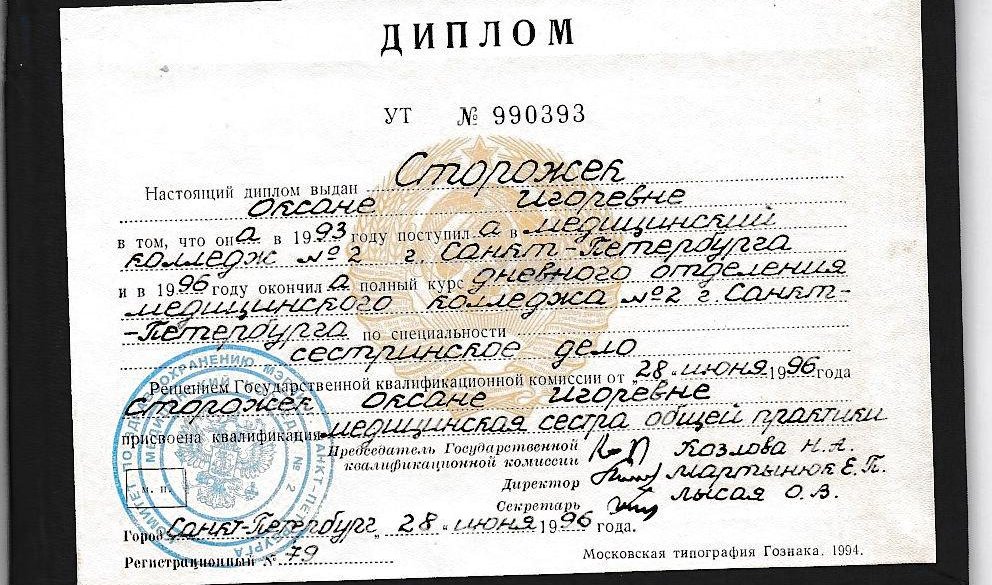 ДИПЛОМ
УТ № 990393
Настоящий диплом выдан Сторожек
Оксане Игоревне
в том, что она в 1993 году поступила в медицинский
колледж №2 г. Санкт-Петербурга
и в 1996 году окончила полный курс дневного отделения
медицинского колледжа №2 г. Санкт-
-Петербурга по специальности
сестринское дело
Решением Государственной квалификационной комиссии от „28“ июня 1996 года
Сторожек Оксане Игоревне
присвоена квалификация медицинская сестра общей практики
Председатель Государственной
квалификационной комиссии Козлова Н.А.
Директор Мартынюк Е.П.
Секретарь Лысая О.В.
М. П.
Город Санкт-Петербург, „28“ июня 1996 года.
Регистрационный № 79
Московская типография Гознака. 1994.